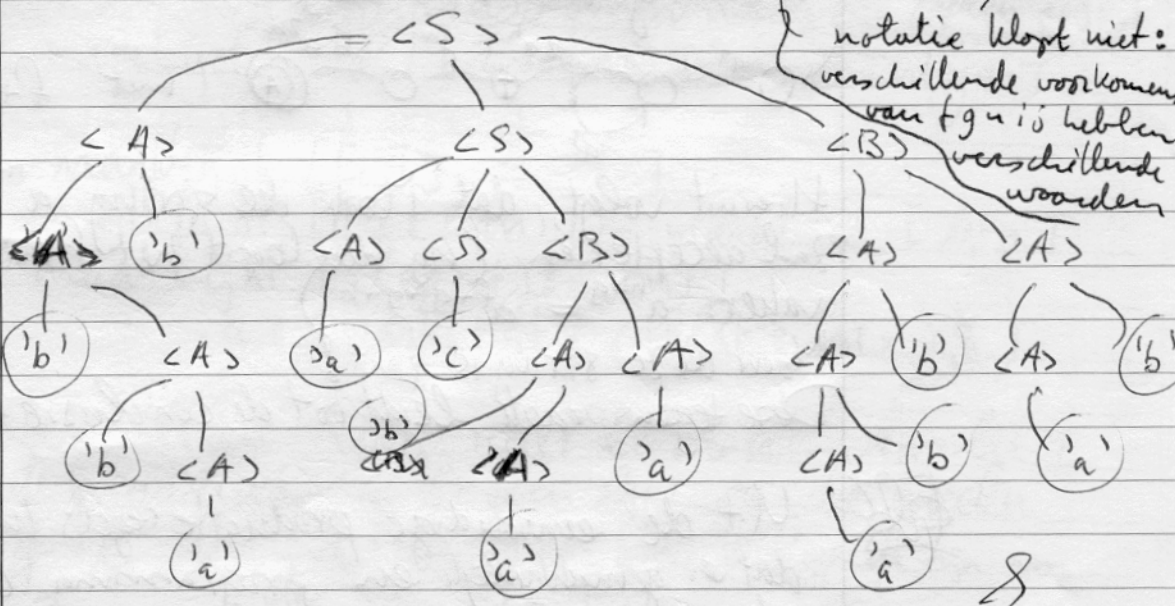 <S>
notatie klopt niet:
verschillende voorkomen
van f g n i j hebben
verschillende
waarden
<A> <S> <B>
<A> 'b' <A> <S> <B> <A> <A>
'b' <A> 'a' 'c' <A> <A> <A> 'b' <A> 'b'
'b' <A> 'b' <A> 'a' <A> 'b' 'a'
'a' 'a' 'a'